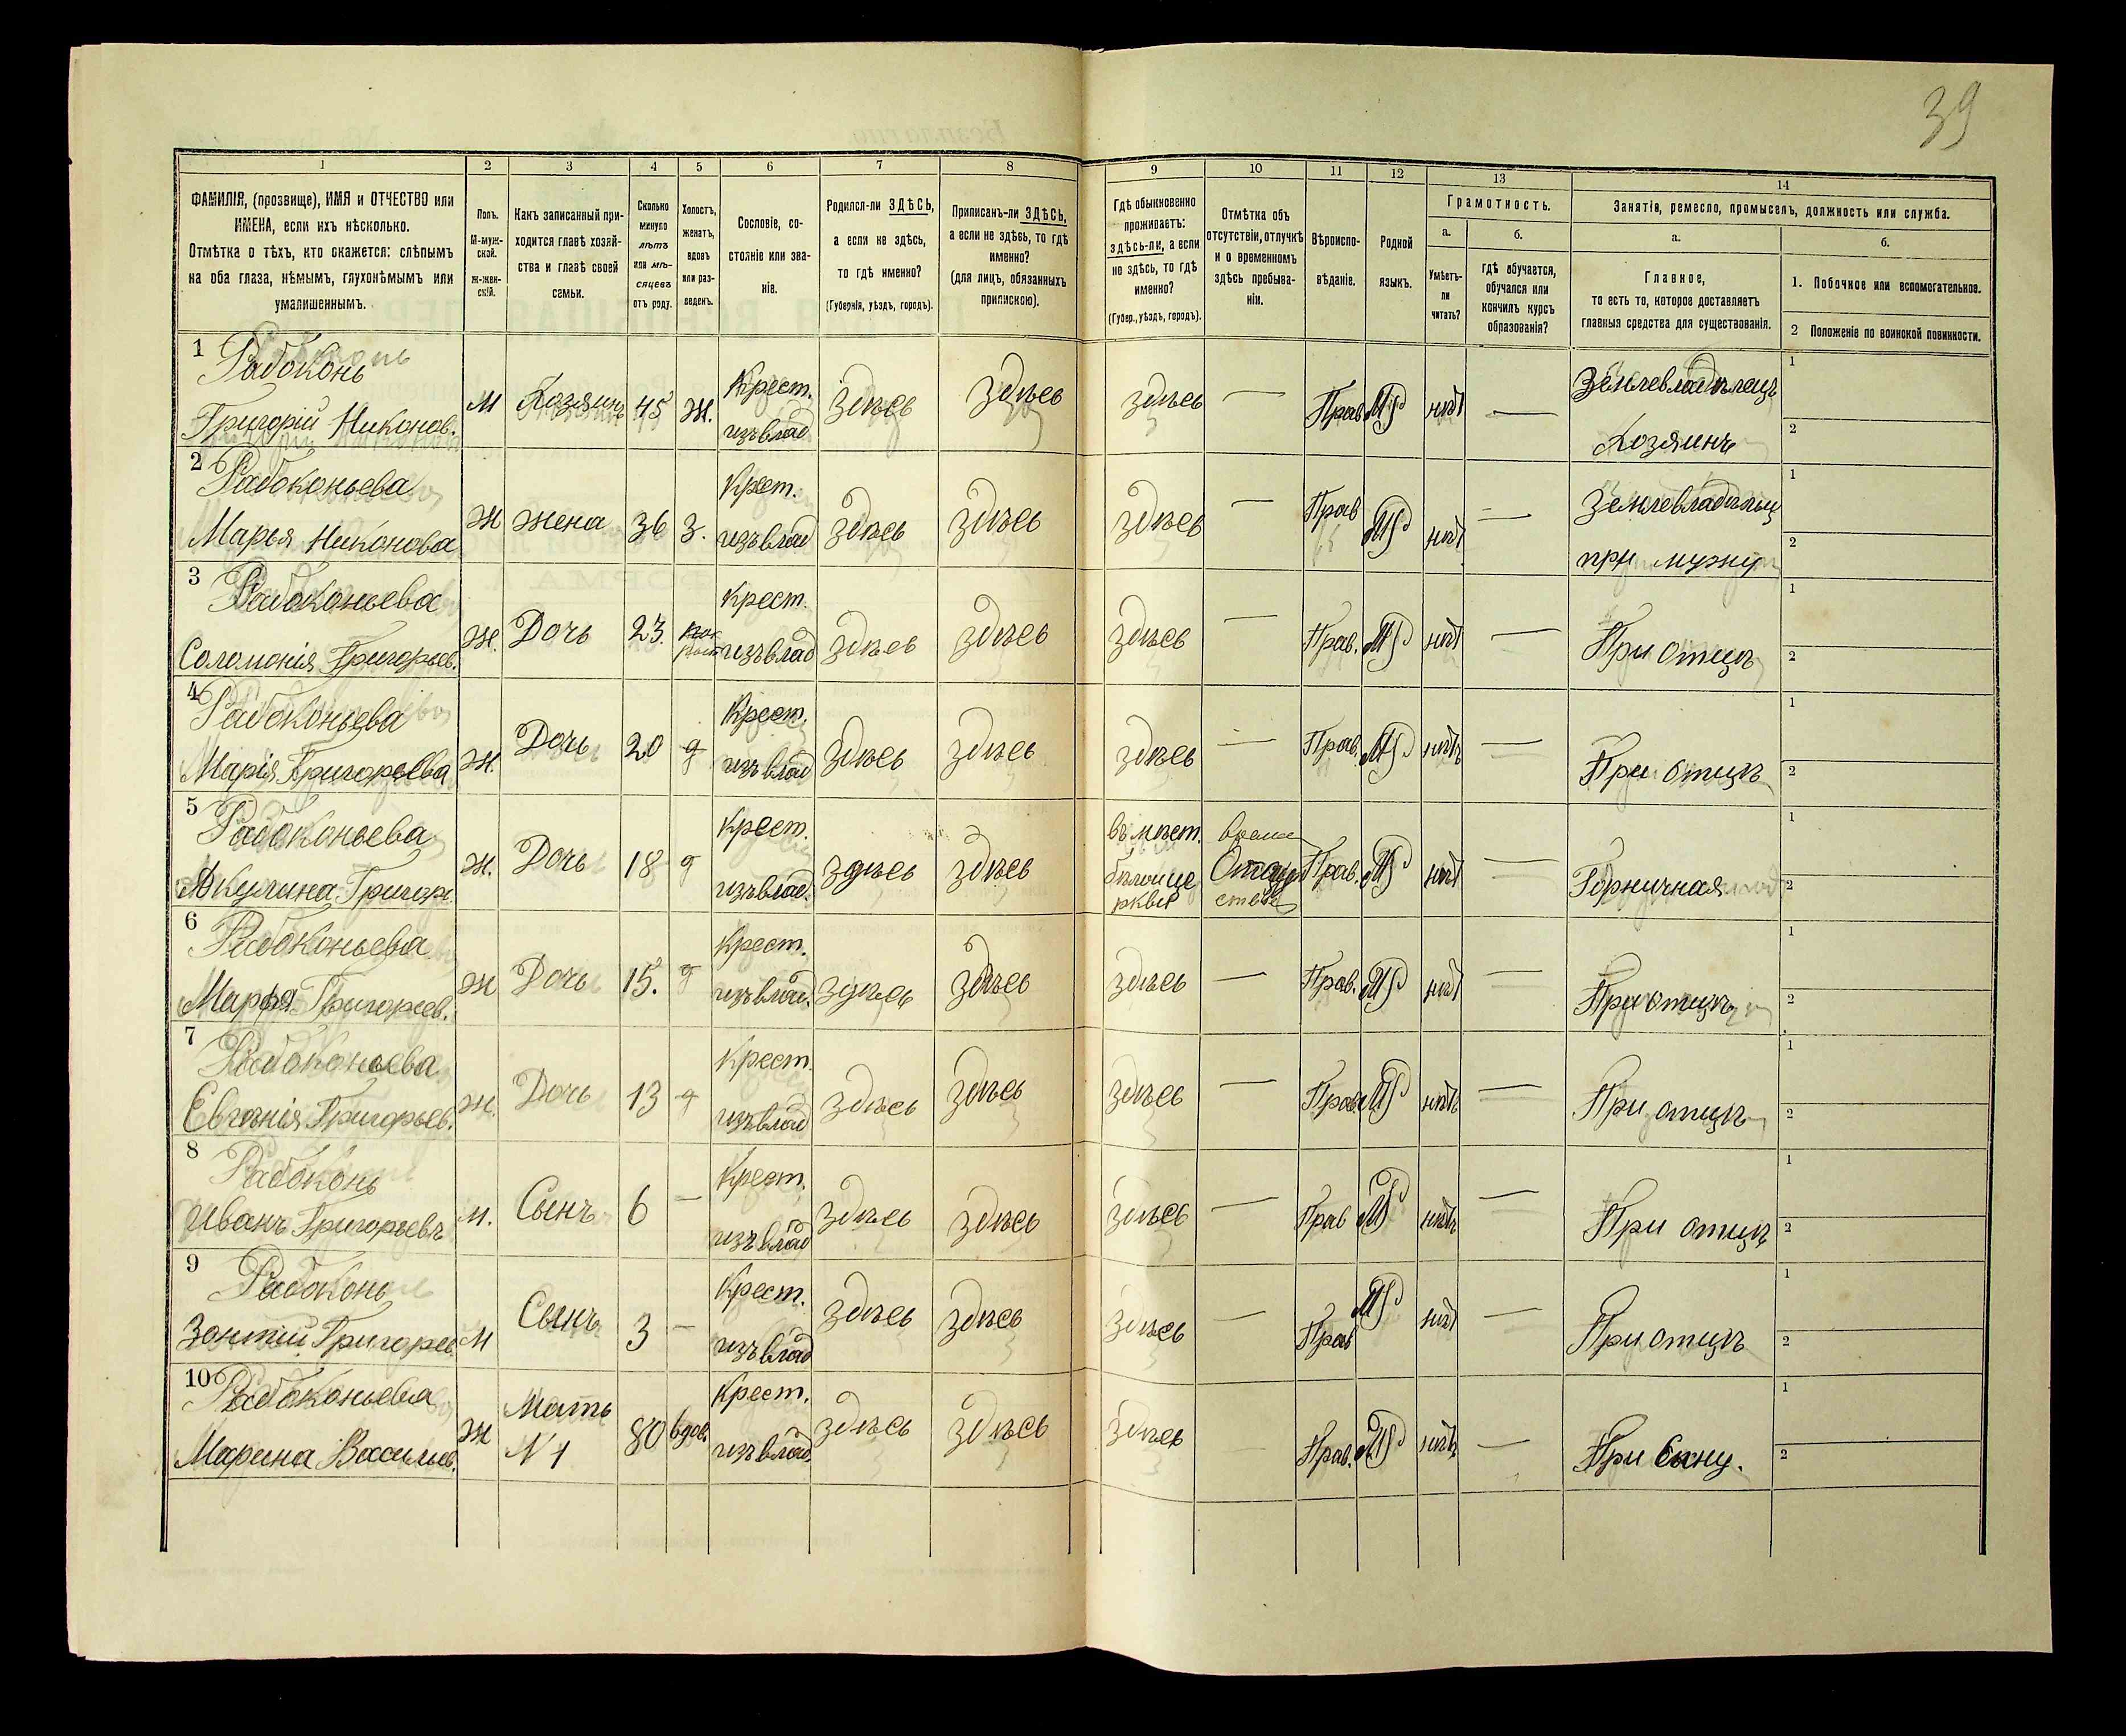 39
1 2 3 4 5 6 7 8 9 10 11 12 13 14
ФАМИЛІЯ, (прозвище), ИМЯ и ОТЧЕСТВО или
ИМЕНА, если ихъ нѣсколько.
Отмѣтка о тѣхъ, кто окажется: слѣпымъ
на оба глаза, нѣмымъ, глухонѣмымъ или
умалишеннымъ.
Полъ.
М-муж-
ской.
Ж-жен-
скій.
Какъ записанный при-
ходится главѣ хозяй-
ства и главѣ своей
семьи.
Сколько
минуло
лѣтъ
или мѣ-
сяцевъ
отъ роду.
Холостъ,
женатъ,
вдовъ
или раз-
веденъ.
Сословіе, со-
стояніе или зва-
ніе.
Родился-ли ЗДѢСЬ,
а если не здѣсь,
то гдѣ именно?
(Губернія, уѣздъ, городъ).
Приписанъ-ли ЗДѢСЬ,
а если не здѣсь, то гдѣ
именно?
(для лицъ, обязанныхъ
припискою).
Гдѣ обыкновенно
проживаетъ:
здѣсь-ли, а если
не здѣсь, то гдѣ
именно?
(Губер., уѣздъ, городъ).
Отмѣтка объ
отсутствіи, отлучкѣ
и о временномъ
здѣсь пребыва-
ніи.
Вѣроиспо-
вѣданіе.
Родной
языкъ.
Грамотность.
а.
Умѣетъ-
ли
читать?
б.
гдѣ обучается,
обучался или
кончилъ курсъ
образованія?
Занятія, ремесло, промыселъ, должность или служба.
а.
Главное,
то есть то, которое доставляетъ
главныя средства для существованія.
б.
1. Побочное или вспомогательное.
2 Положеніе по воинской повинности.
1 Рабоконь Крест. Землевладѣлецъ 1
Григорій Никонов. М Хозяинъ 45 Ж. изъ влад здѣсь здѣсь здѣсь — Прав. МР нѣт — Хозяинъ 2
2 Рабоконьева Крест. Землевладѣлец 1
Марья Никонова Ж жена 36 З. изъ влад здѣсь здѣсь здѣсь — Прав МР нѣт — при мужу 2
3 Рабоконьева Крест. 1
Соломонія Григорьев. Ж. Дочь 23. изъ влад здѣсь здѣсь здѣсь — Прав. МР нѣт — При отцѣ 2
4 Рабоконьева Крест. 1
Марія Григорьева Ж. Дочь 20 д изъ влад здѣсь здѣсь здѣсь — Прав. МР нѣтъ — При отцѣ 2
5 Рабоконьева Крест. въ мѣст. 1
Акулина Григор. Ж. Дочь 18 д изъ влад. здѣсь здѣсь бѣлой це Прав. МР нѣт — Горничная 2
ркви
6 Рабоконьева Крест. 1
Марфа Григорьев. Ж Дочь 15. д изъ влад. здѣсь здѣсь здѣсь — Прав. МР нѣт — При отцѣ 2
7 Рабоконьева Крест. 1
Евгенія Григорьев. Ж. Дочь 13 д изъ влад здѣсь здѣсь здѣсь — Прав. МР нѣтъ — При отцѣ 2
8 Рабоконь Крест. 1
Иванъ Григорьевъ М. Сынъ 6 — изъ влад здѣсь здѣсь здѣсь — Прав МР нѣтъ — При отцѣ 2
9 Рабоконь Крест. 1
Григорьев. М Сынъ 3 — изъ влад здѣсь здѣсь здѣсь — Прав МР нѣт — При отцѣ 2
10 Рабоконьева Мать Крест. 1
Марина Васильев. Ж N 1 80 вдов. изъ влад. здѣсь здѣсь здѣсь Прав. МР нѣтъ — При сыну. 2